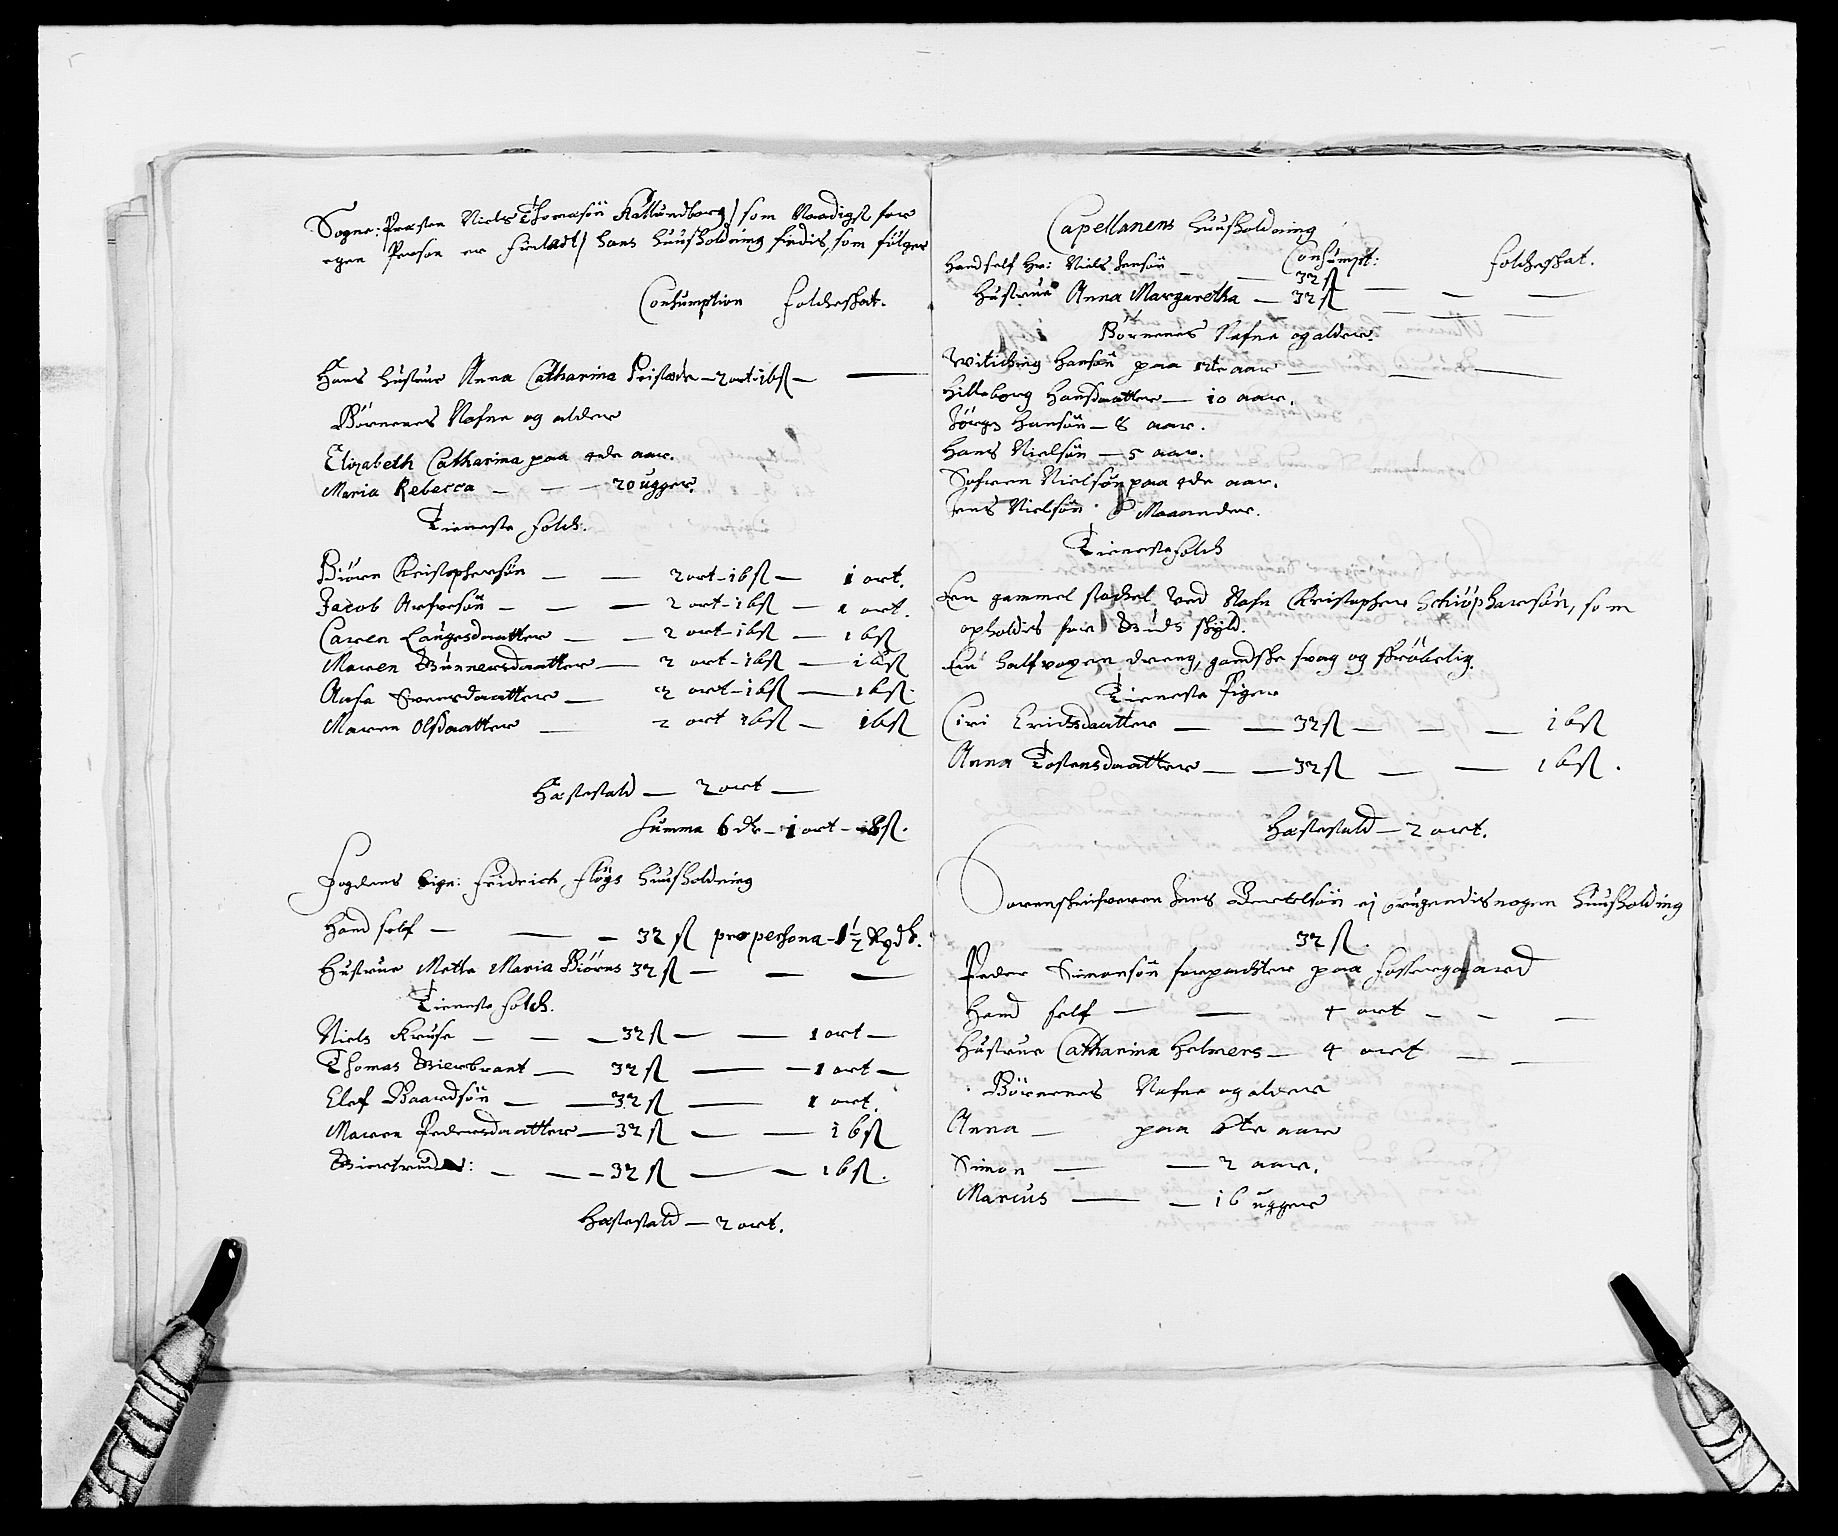 Sogne: Præsten Niels Thomasøn Kallundborg / som Naadigst for
egen Person er forladt / hans Huusholdning findis, som følger
Consumption Folcheskat.
Hans Hustrue Anna Catharina 2 ort - 16 ß —
Børnenes Nafne og alder
Elizabeth Catharina paa 4de aar.
Maria Rebecca — — 20 ugger.
Tieneste Folch.
Biørn Kristophersøn — — 2 ort - 16 ß — 1 ort.
Jacob — — — 2 ort - 16 ß — 1 ort.
Caren Laugesdaatter — — 2 ort - 16 ß — 16 ß
Maren Gunnersdaatter — 2 ort - 16 ß — 16 ß
Aasa Svensdaatter — 2 ort - 16 ß — 16 ß.
Maren Olsdaatter — 2 ort 16 ß — 16 ß
Hæstestald — 2 ort —
Summa 6 dr - 1 ort - 8 ß.
Fogdens Sign: Fridrich Fløgs Huusholdning
Hand self — — — 32 ß pro persona - 1 ½ Rgdl.
Hustrue Mette Maria Biørns 32 ß — — —
Tieneste Folch.
Niels Kruse — — — 32 ß — — 1 ort —
Thomas Bierbrant — 32 ß — — 1 ort —
Elef Baardsøn — — 32 ß — 1 ort.
Maren Pedersdaatter — 32 ß — — 16 ß
Giertrud: — — — 32 ß — — 16 ß.
Hæstestald — 2 ort.
Capellanens Huusholdning
Consumpt: Folcheskat.
Hand self Hr: Niels Jensøn — — 32 ß — — —
Hustrue Anna Margaretha — 32 ß — — —
Børnenes Nafne og alder.
Witiching Hansøn paa 12te aar — — —
Hilleborg Hansdaatter — 10 aar.
Jørgen Hansøn — 8 aar.
Hans Nielsøn — 5 aar.
Søfren Nielsøn paa 4de aar.
Jens Nielsøn Maaneder.
Tieneste Folch
En gammel stachel ved Nafn Kristopher, som
opholdis for Guds skyld.
En half voxen dreng, gandske svag og skrøbelig.
Tieneste Piger
Ciri Erichsdaatter — — 32 ß — — — 16 ß
Anna Tostensdaatter — — 32 ß — — 16 ß.
Hæstestald — 2 ort.
Sorenskrifveren Jens Bertelsøn ej brugendis nogen Huusholding
32 ß.
Peder Simonsøn forpachter paa Fossergaard
Hand self — — 4 ort — — —
Hustrue Catharina Helmers — 4 ort — —
Børnenes Nafne og alder
Anna — paa 6te aar
Simon — — 2 aar.
Marcus — — 16 ugger